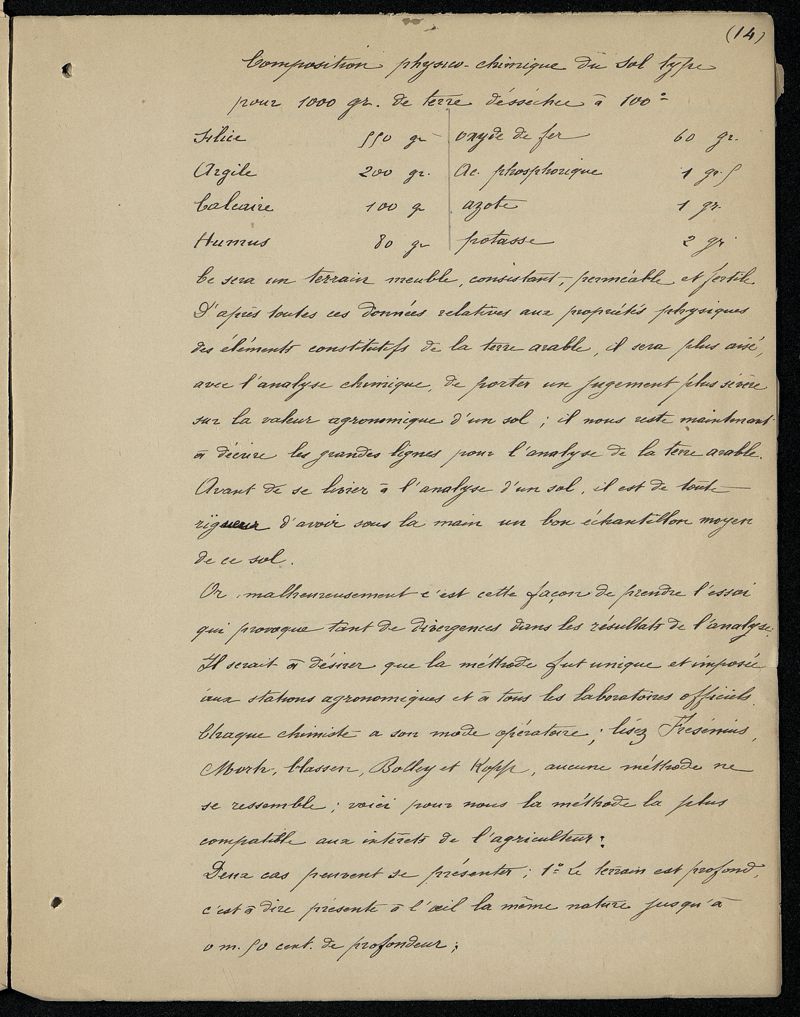 (14)
Composition physico-chimique du sol type
pour 1000 gr. de terre désséchée à 100°
Silice 550 gr oxyde de fer 60 gr.
Argile 200 gr. Ac. phosphorique 1 gr. 5
Calcaire 100 g azote 1 gr.
Humus 80 gr potasse 2 gr.
Ce sera un terrain meuble, consistant, perméable et fertile.
D'après toutes ces données relatives aux propriétés physiques
des éléments constitutifs de la terre arable, il sera plus aisé,
avec l'analyse chimique, de porter un jugement plus sévère
sur la valeur agronomique d'un sol ; il nous reste maintenant
à décrire les grandes lignes pour l'analyse de la terre arable.
Avant de se livrer à l'analyse d'un sol, il est de toute
rigueur d'avoir sous la main un bon échantillon moyen
de ce sol.
Or, malheureusement c'est cette façon de prendre l'essai
qui provoque tant de divergences dans les résultats de l'analyse.
Il serait à désirer que la méthode fut unique et imposée
aux stations agronomiques et à tous les laboratoires officiels.
Chaque chimiste a son mode opératoire ; lisez Fresénius,
Morh, Classen, Bolley et Kopp, aucune méthode ne
se ressemble ; voici pour nous la méthode la plus
compatible aux intérets de l'agriculteur :
Deux cas peuvent se présenter ; 1° Le terrain est profond,
c'est à dire présente à l'œil la même nature jusqu'à
0 m. 50 cent. de profondeur ;